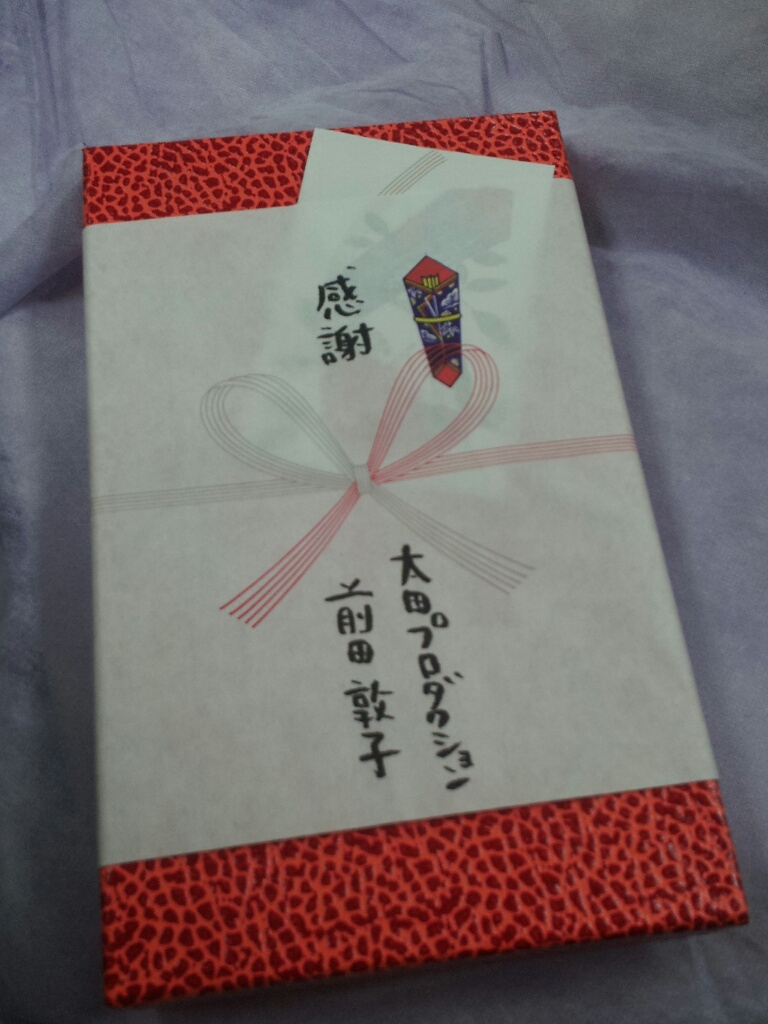 感謝
太田プロダクション
前田敦子